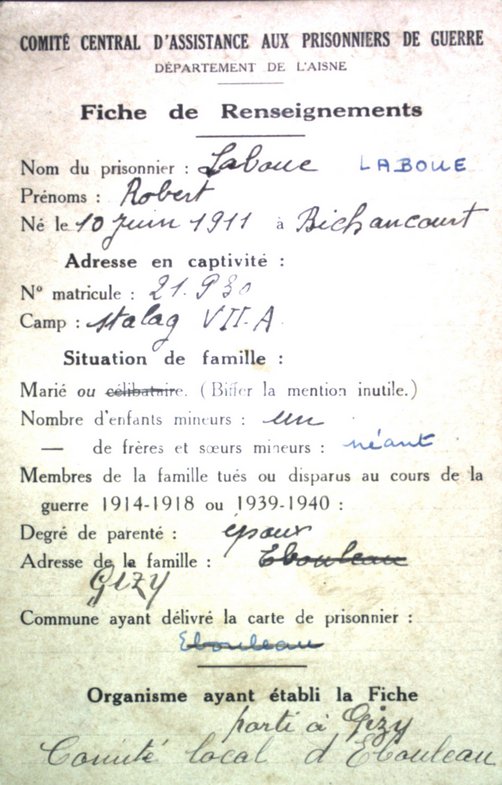 COMITÉ CENTRAL D'ASSISTANCE AUX PRISONNIERS DE GUERRE
DÉPARTEMENT DE L'AISNE
Fiche de Renseignements
Nom du prisonnier : Laboue LABOUE
Prénoms : Robert
Né le 10 juin 1911 à Bichancourt
Adresse en captivité :
N° matricule : 21.930
Camp : Stalag VII.A.
Situation de famille :
Marié ou célibataire. (Biffer la mention inutile.)
Nombre d'enfants mineurs : un
— de frères et sœurs mineurs : néant
Membres de la famille tués ou disparus au cours de la
guerre 1914-1918 ou 1939-1940 :
Degré de parenté : époux
Adresse de la famille : Ebouleau
Gizy
Commune ayant délivré la carte de prisonnier :
Ebouleau
Organisme ayant établi la Fiche
parti à Gizy
Comité local d'Ebouleau